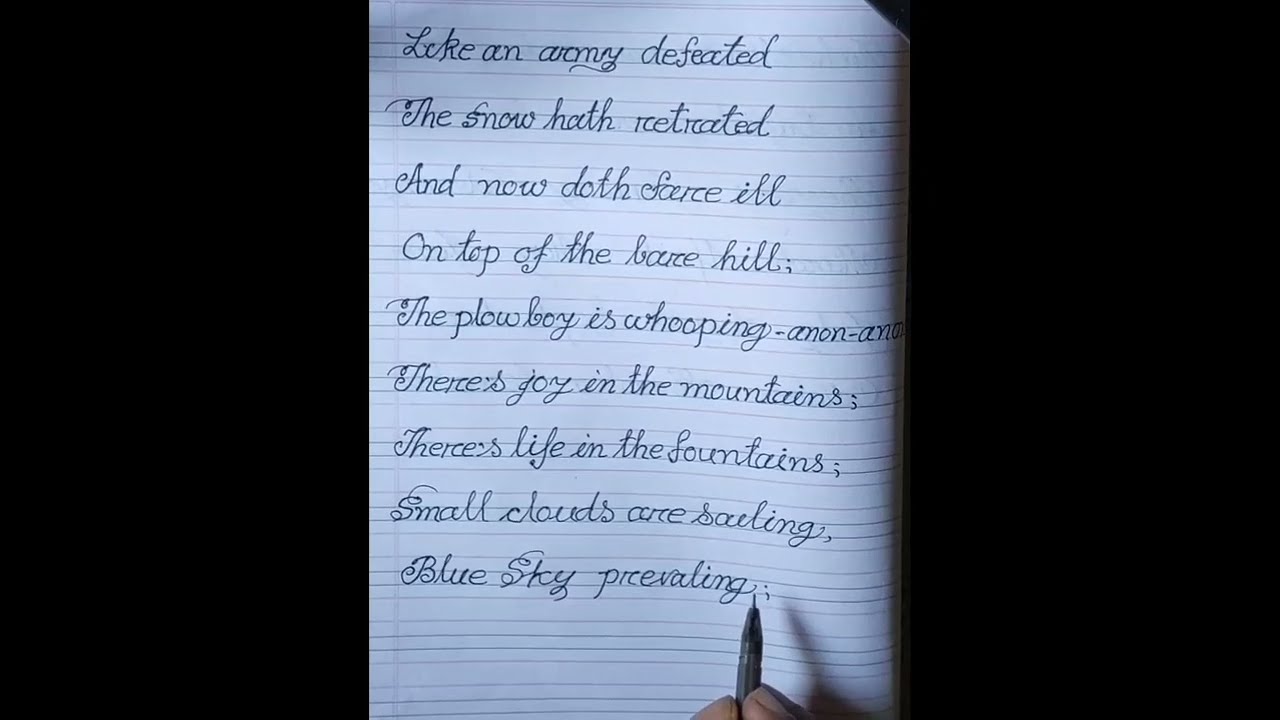 Like an army defeated
The Snow hath retreated
And now doth fare ill
On top of the bare hill;
The plowboy is whooping-anon-ano
There's joy in the mountains;
There's life in the fountains;
Small clouds are sailing,
Blue Sky prevaling;